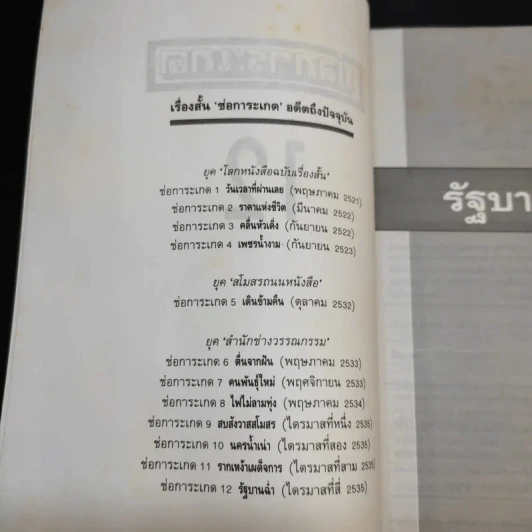 เรื่องสั้น 'ช่อการะเกด' อดีตถึงปัจจุบัน
ยุค 'โลกหนังสือฉบับเรื่องสั้น'
ช่อการะเกด 1 วันเวลาที่ผ่านเลย (พฤษภาคม 2521)
ช่อการะเกด 2 ราคาแห่งชีวิต (มีนาคม 2522)
ช่อการะเกด 3 คลื่นหัวเดิ่ง (กันยายน 2522)
ช่อการะเกด 4 เพชรน้ำงาม (กันยายน 2523)
ยุค 'สโมสรถนนหนังสือ'
ช่อการะเกด 5 เดินข้ามคืน (ตุลาคม 2532)
ยุค 'สำนักช่างวรรณกรรม'
ช่อการะเกด 6 ตื่นจากฝัน (พฤษภาคม 2533)
ช่อการะเกด 7 คนพันธุ์ใหม่ (พฤศจิกายน 2533)
ช่อการะเกด 8 ไฟไม่ลามทุ่ง (พฤษภาคม 2534)
ช่อการะเกด 9 สบสังวาสสโมสร (ไตรมาสที่หนึ่ง 2535)
ช่อการะเกด 10 นครน้ำเน่า (ไตรมาสที่สอง 2535)
ช่อการะเกด 11 รากเหง้าเผด็จการ (ไตรมาสที่สาม 2535)
ช่อการะเกด 12 รัฐบานฉ่ำ (ไตรมาสที่สี่ 2535)
รัฐบา